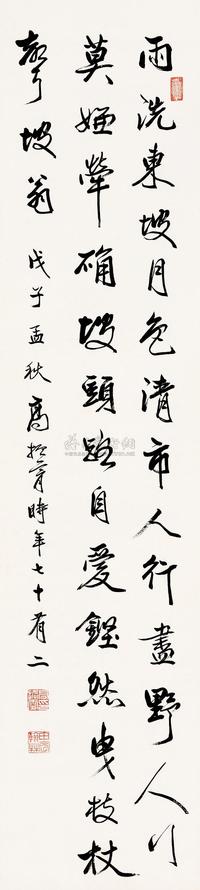 雨洗東坡月色清市人行盡野人行
莫嫌犖确坡頭路自愛鏗然曳杖
聲 坡翁 戊子孟秋高振霄時年七十有二